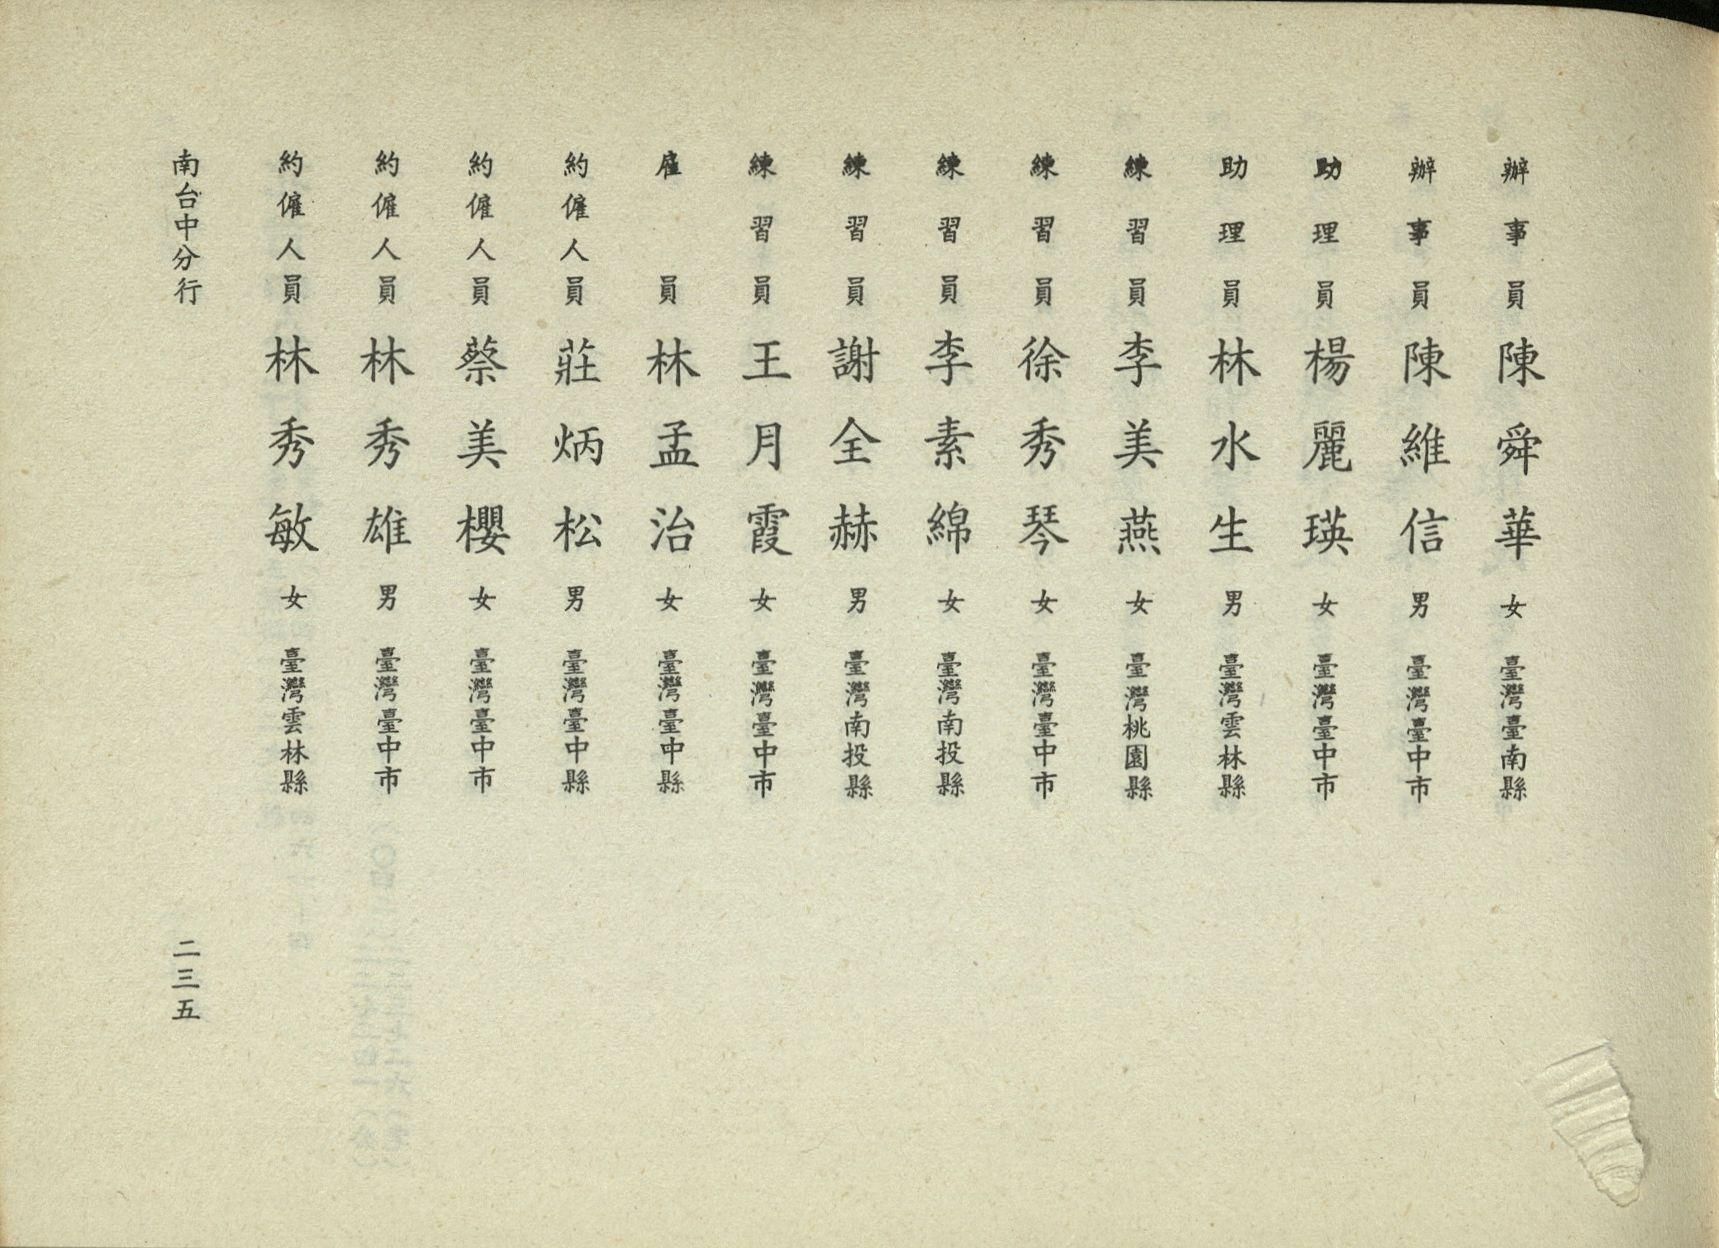 辦事員陳舜華女臺灣臺南縣
辦事員陳維信男臺灣臺中市
助理員楊麗瑛女臺灣臺中市
助理員林水生男臺灣雲林縣
練習員李美燕女臺灣桃園縣
練習員徐秀琴女臺灣臺中市
練習員李素綿女臺灣南投縣
練習員謝全赫男臺灣南投縣
練習員王月霞女臺灣臺中市
雇員林孟治女臺灣臺中縣
約僱人員莊炳松男臺灣臺中縣
約僱人員蔡美櫻女臺灣臺中市
約僱人員林秀雄男臺灣臺中市
約僱人員林秀敏女臺灣雲林縣
南台中分行
二三五